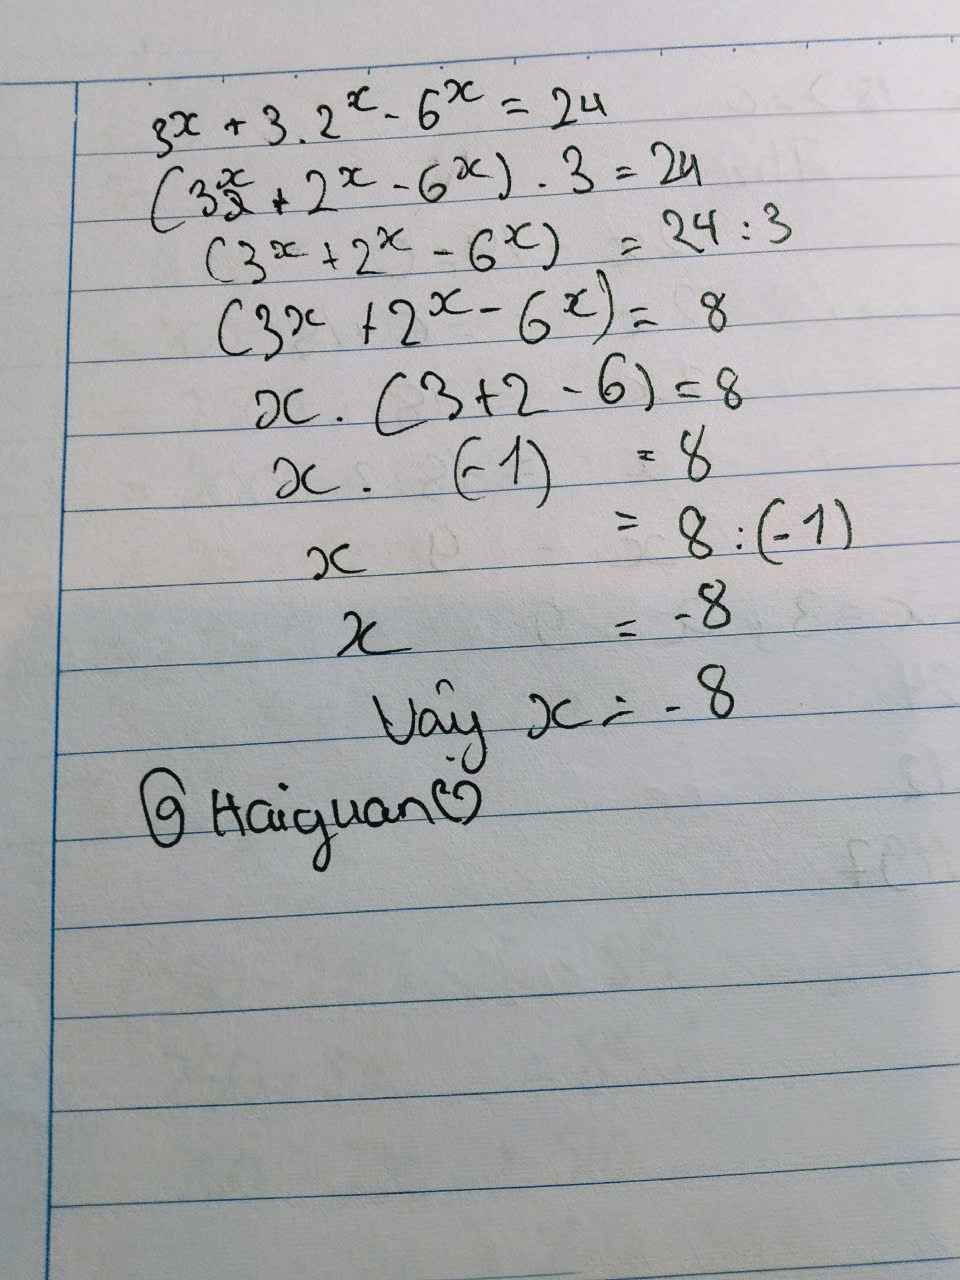 3^x + 3 . 2^x - 6^x = 24
(3^x + 2^x - 6^x) . 3 = 24
(3^x + 2^x - 6^x) = 24 : 3
(3^x + 2^x - 6^x) = 8
x . (3 + 2 - 6) = 8
x . (-1) = 8
x = 8 : (-1)
x = -8
Vậy x = -8
Haiquan